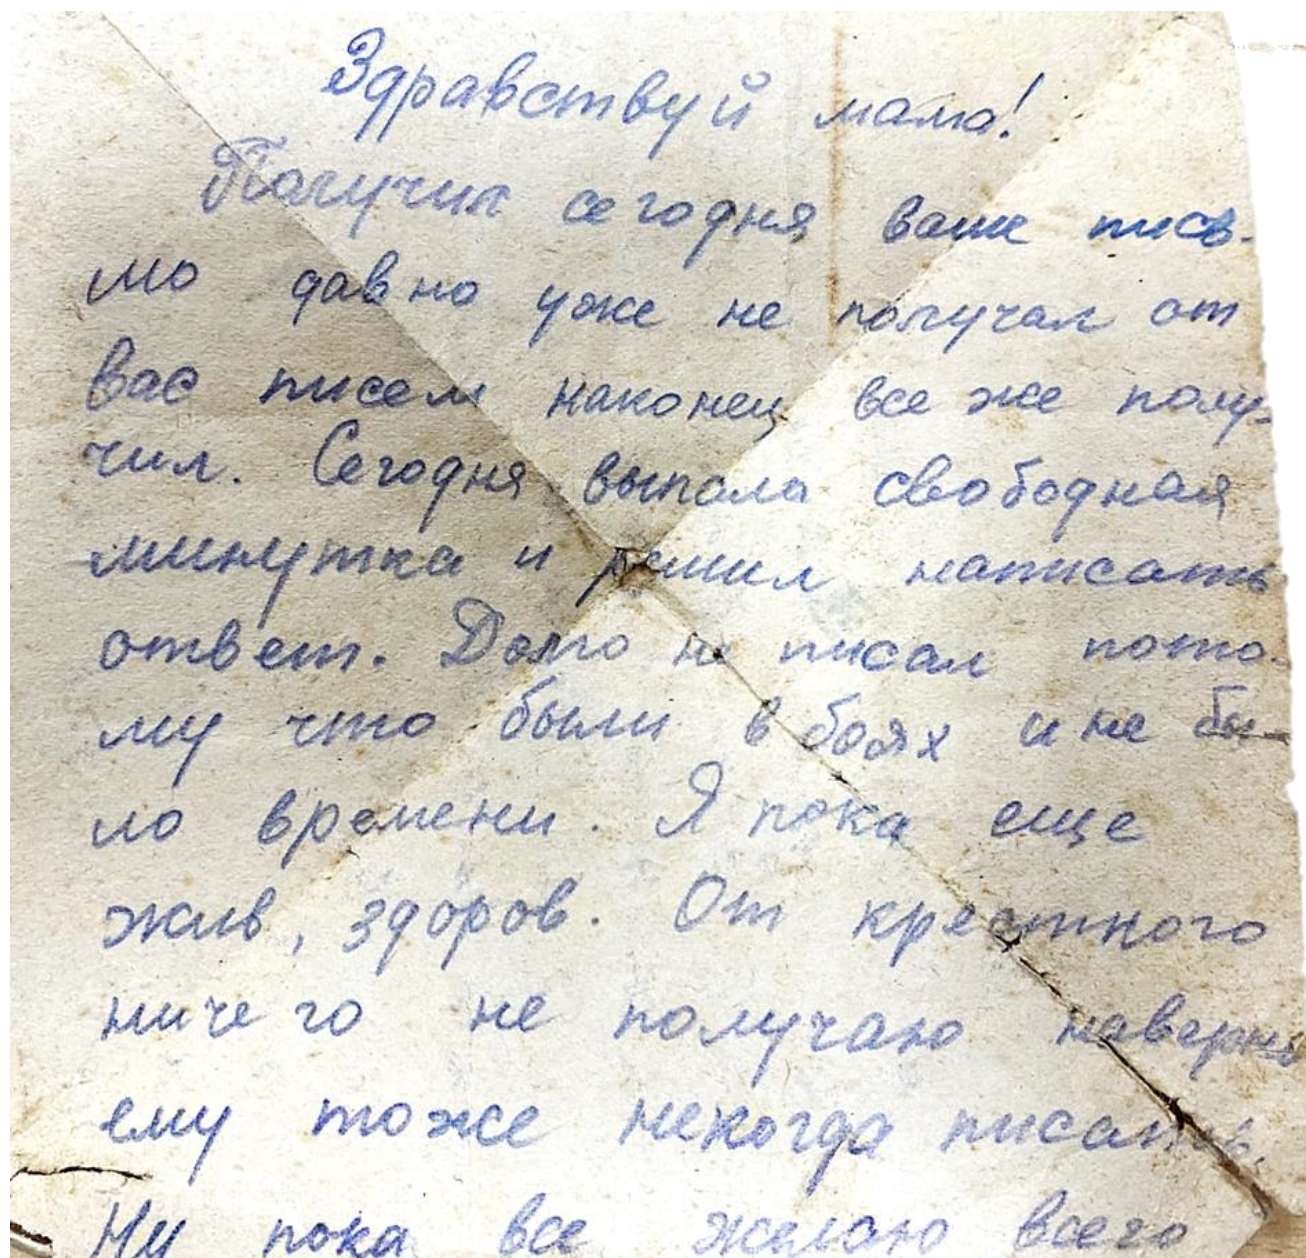 Здравствуй мама!
Получил сегодня ваше пись-
мо давно уже не получал от
вас писем наконец все же полу-
чил. Сегодня выпала свободная
минутка и решил написать
ответ. Долго не писал пото-
му что были в боях и не бы-
ло времени. Я пока еще
жив, здоров. От крестного
ничего не получаю наверно
ему тоже некогда писать.
Ну пока все желаю всего